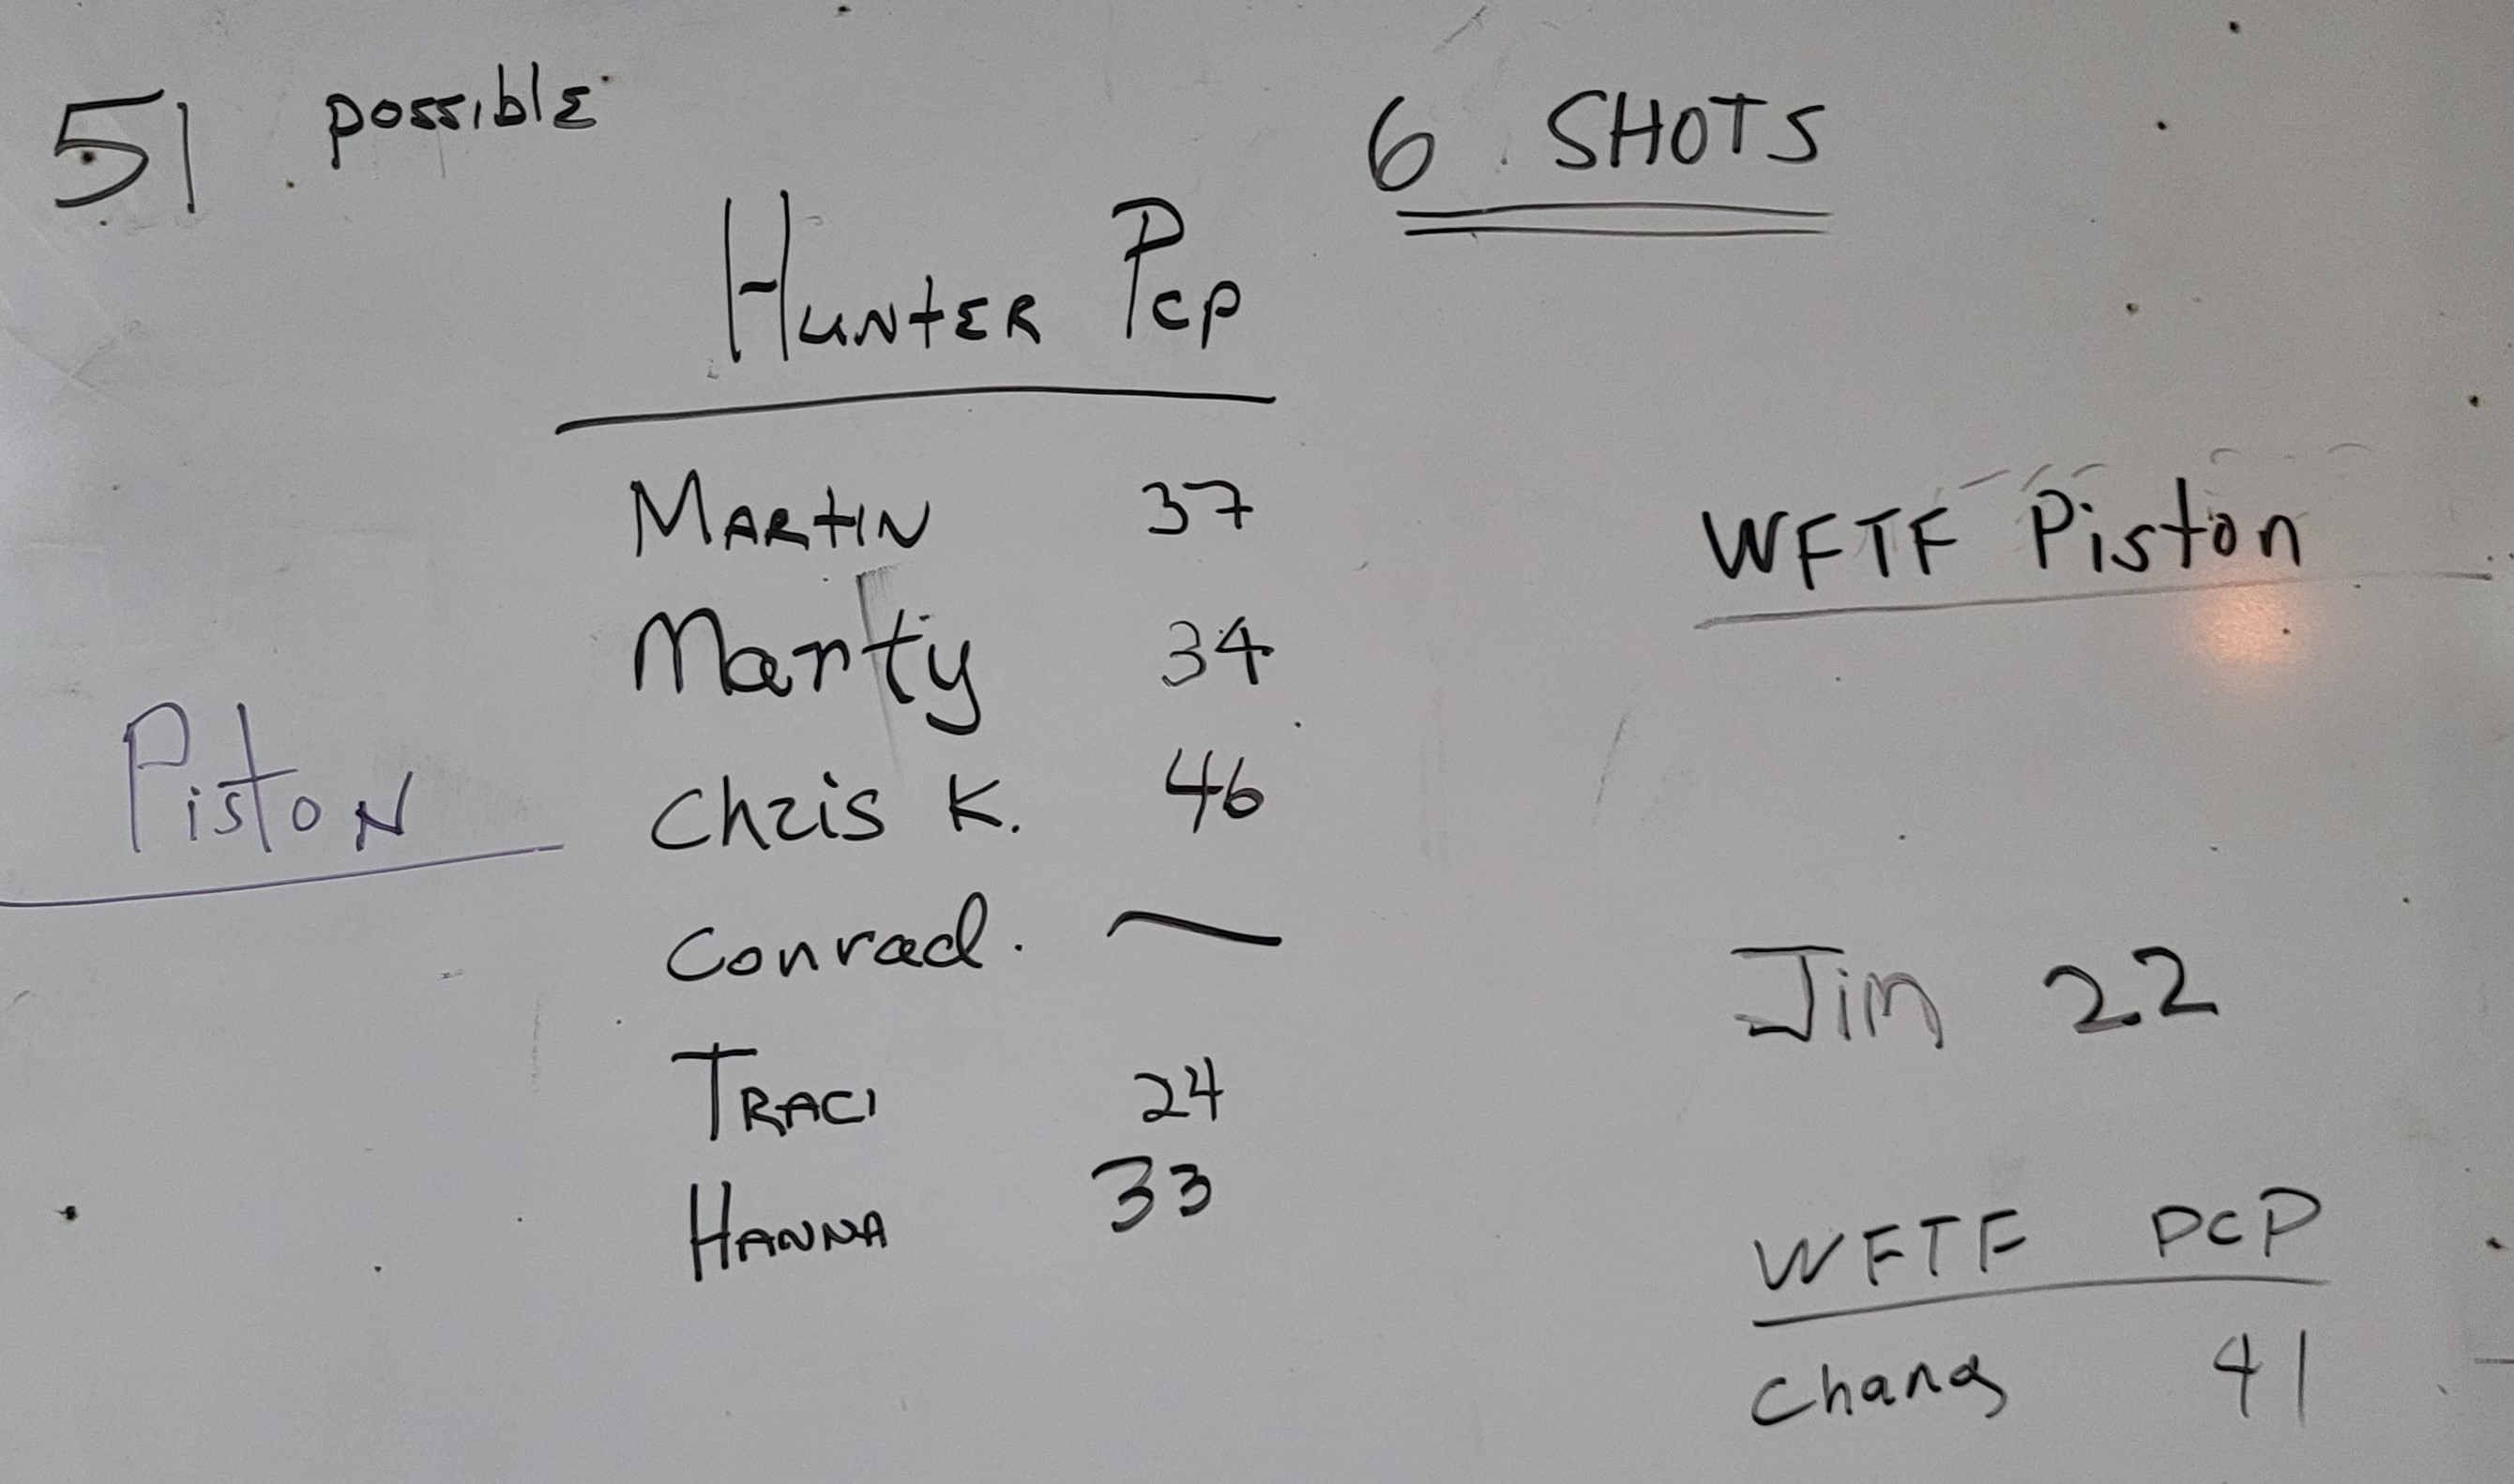 51 possible
6 SHOTS
HUNTER PCP
MARTIN 37
Marty 34
Chris K. 46
Conrad. —
TRACI 24
HANNA 33
Piston
WFTF Piston
Jim 22
WFTF PCP
Chang 41